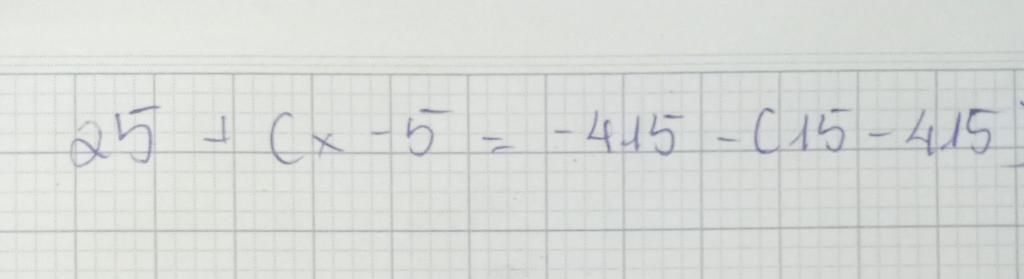 25 + (x - 5 = -415 - (15 - 415)